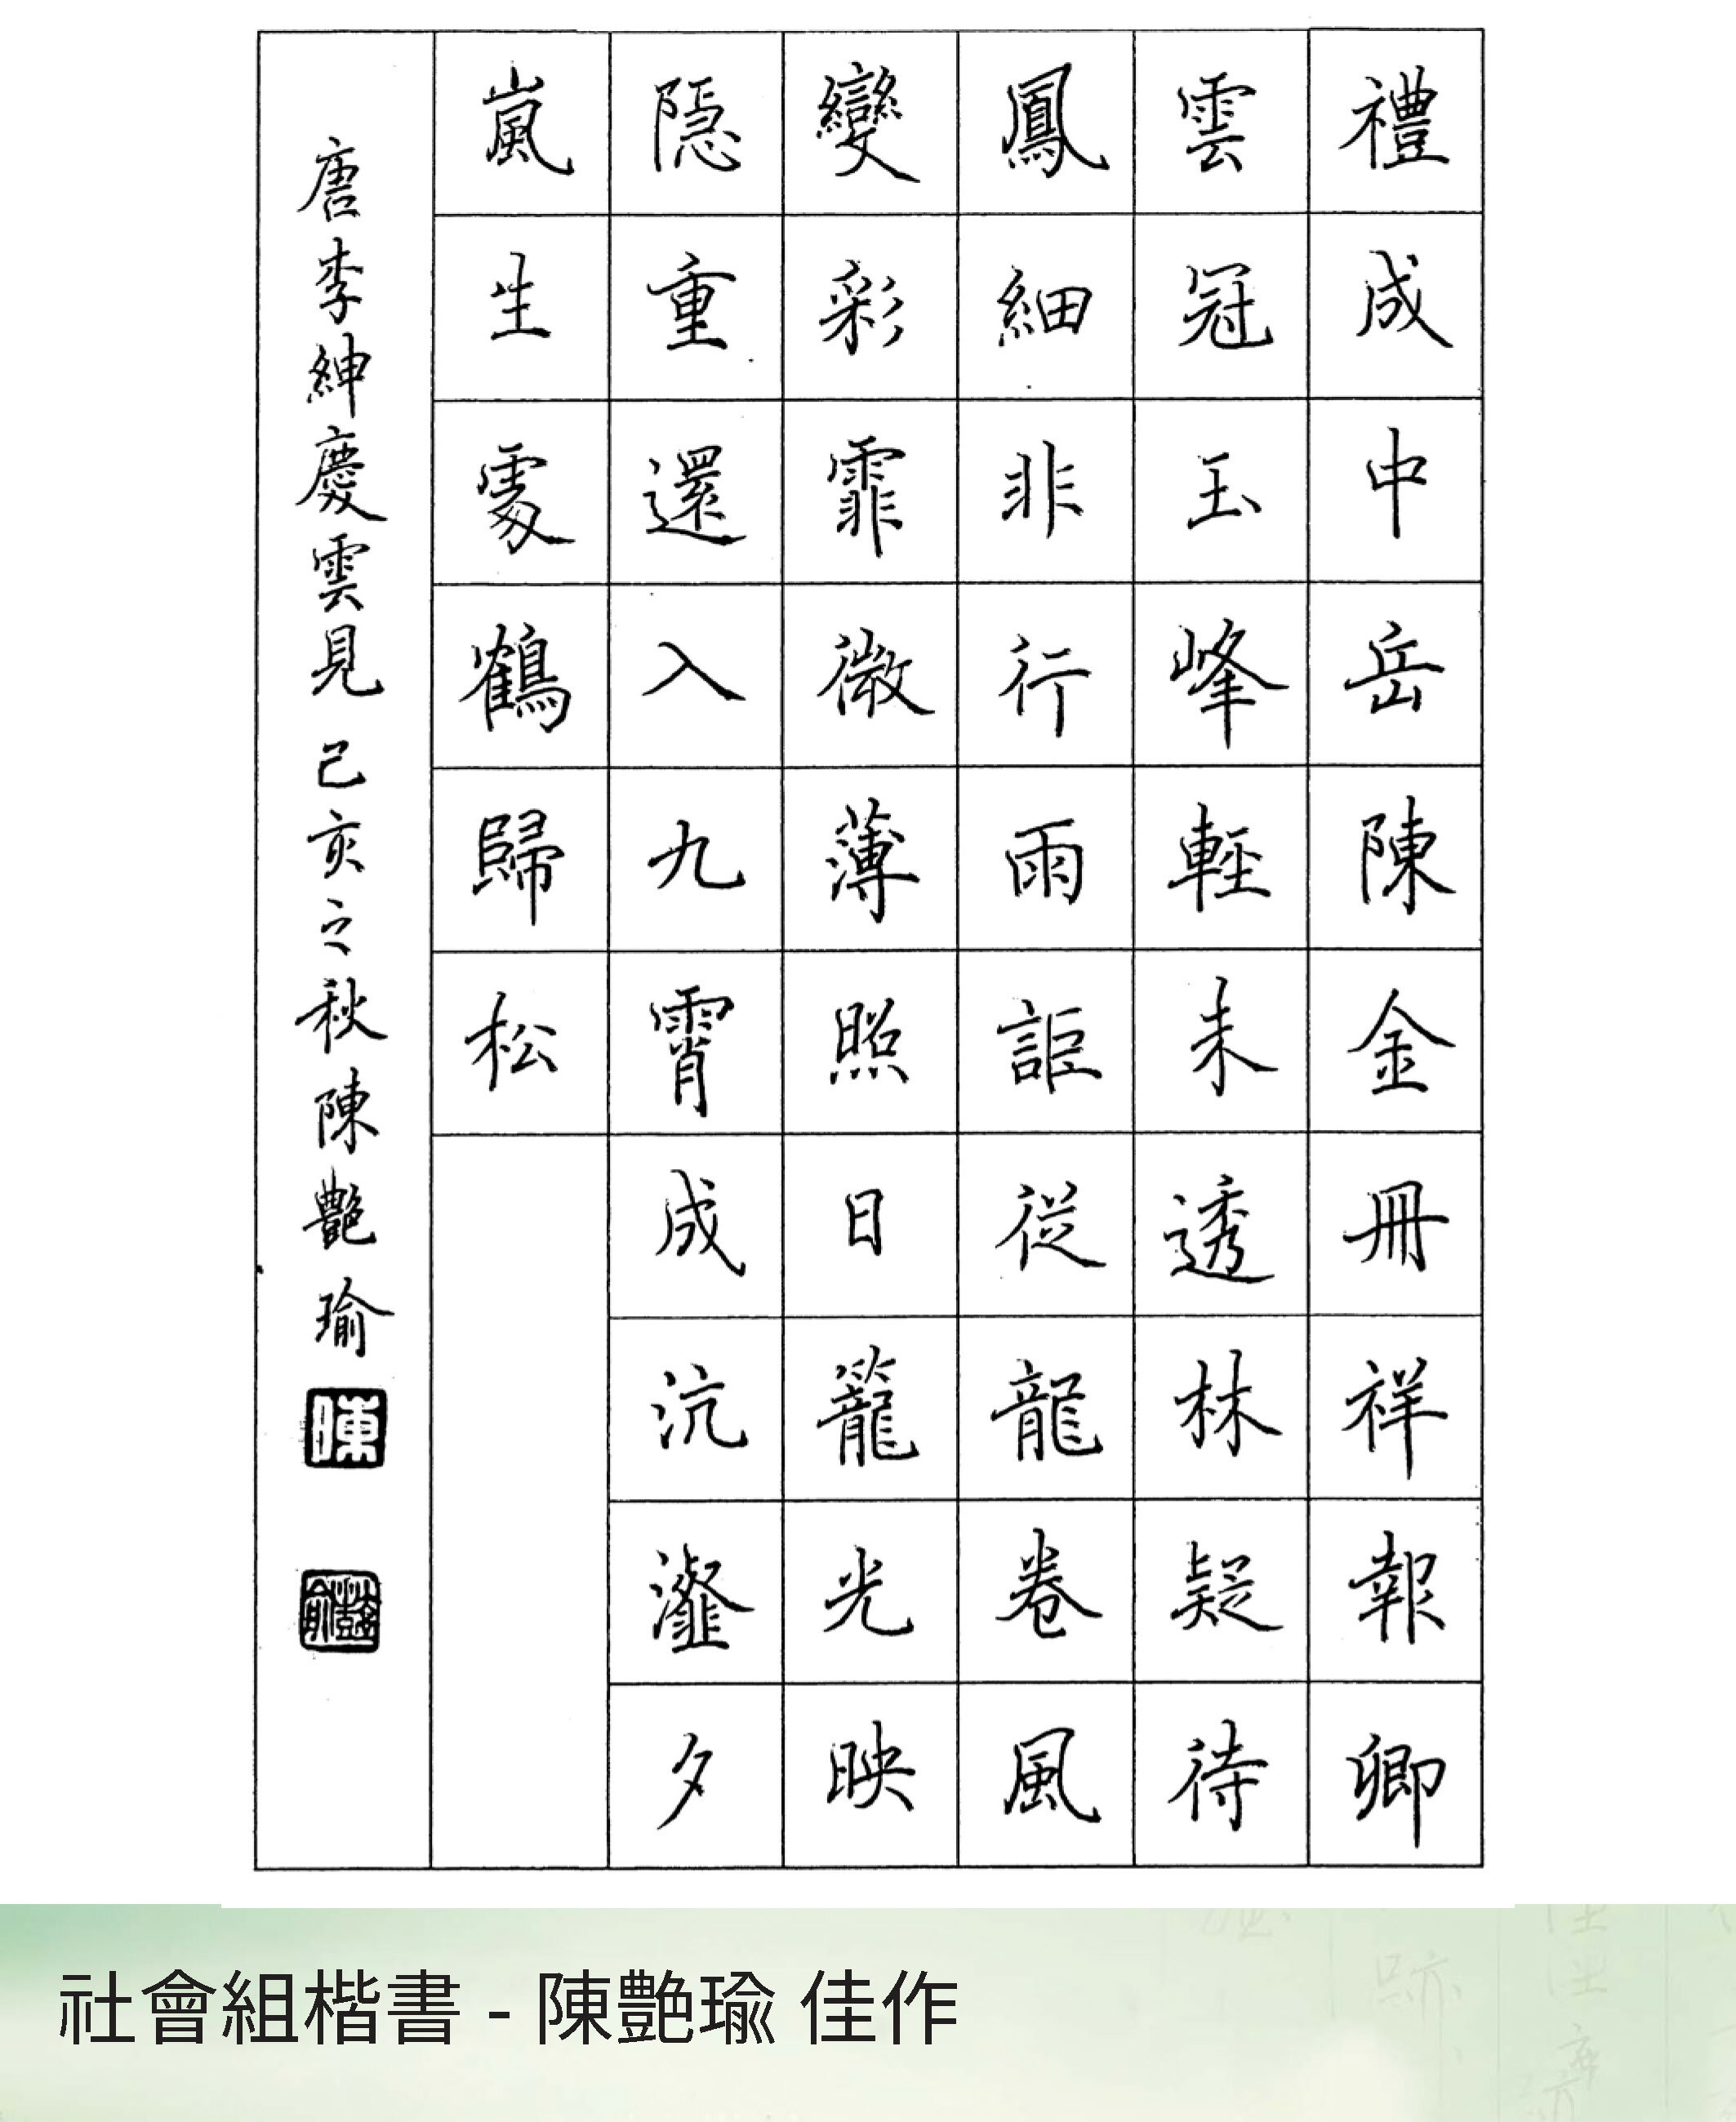 禮成中岳陳金冊祥報卿
雲冠玉峰輕未透林疑待
鳳細非行雨詎從龍卷風
變彩霏微薄照日籠光映
隠重還入九霄成沆瀣夕
嵐生處鶴歸松
唐李紳慶雲見 己亥之秋陳艷瑜
陳
社會組楷書 - 陳艷瑜 佳作